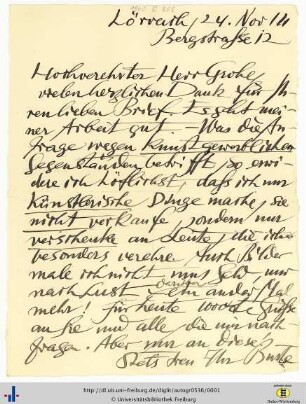 Lörrach, 24. Nov 14
Bergstraße 12
Hochverehrter Herr Grohe,
vielen herzlichen Dank für Ih-
ren lieben Brief. Es geht mei-
ner Arbeit gut. – Was die An-
frage wegen kunstgewerblichen
Gegenständen betrifft, so erwi-
dere ich höflichst, daß ich nur
künstlerische Dinge mache, sie
nicht verkaufe, sondern nur
verschenke an Leute, die ich
besonders verehre. Auch Bilder
male ich nicht ums Geld, nur
nach Lust. ein ander Mal
mehr! Für heute Grüße
an Sie und alle, die mir nach
fragen. Aber nur an diese
Stets treu Ihr
http://dl.ub.uni-freiburg.de/diglit/autogr0536/0001
© Universitätsbibliothek Freiburg